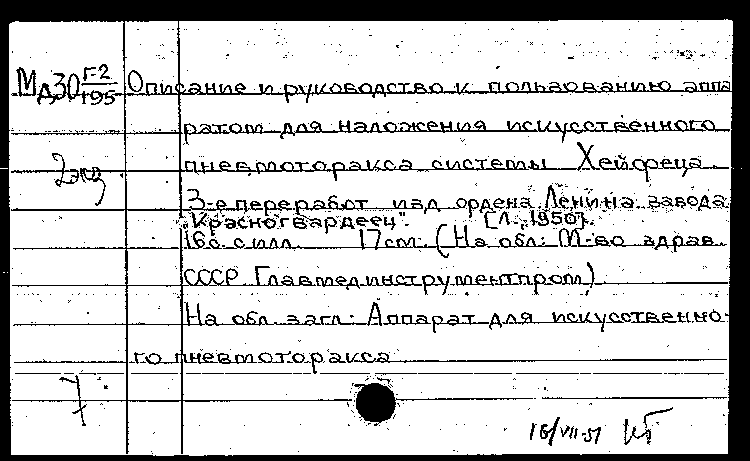 Мд30 Г-2/195 Описание и руководство к пользованию аппа
ратом для наложения искусственного
2 экз пневмоторакса системы Хейфеца.
3-е переработ изд ордена Ленина завода
„Красногвардеец". [Л., 1950].
16с. с илл. 17 см. (На обл: М-во здрав.
СССР. Главмединструментпром)
На обл. загл: Аппарат для искусственно-
го пневмоторакса
7
16/VII-51